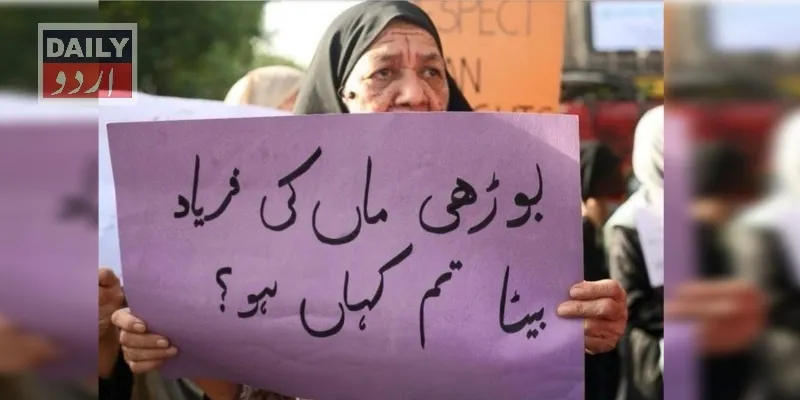 DAILY
اردو
SPECT
AN
بوڑھی ماں کی فریاد
بیٹا تم کہاں ہو؟